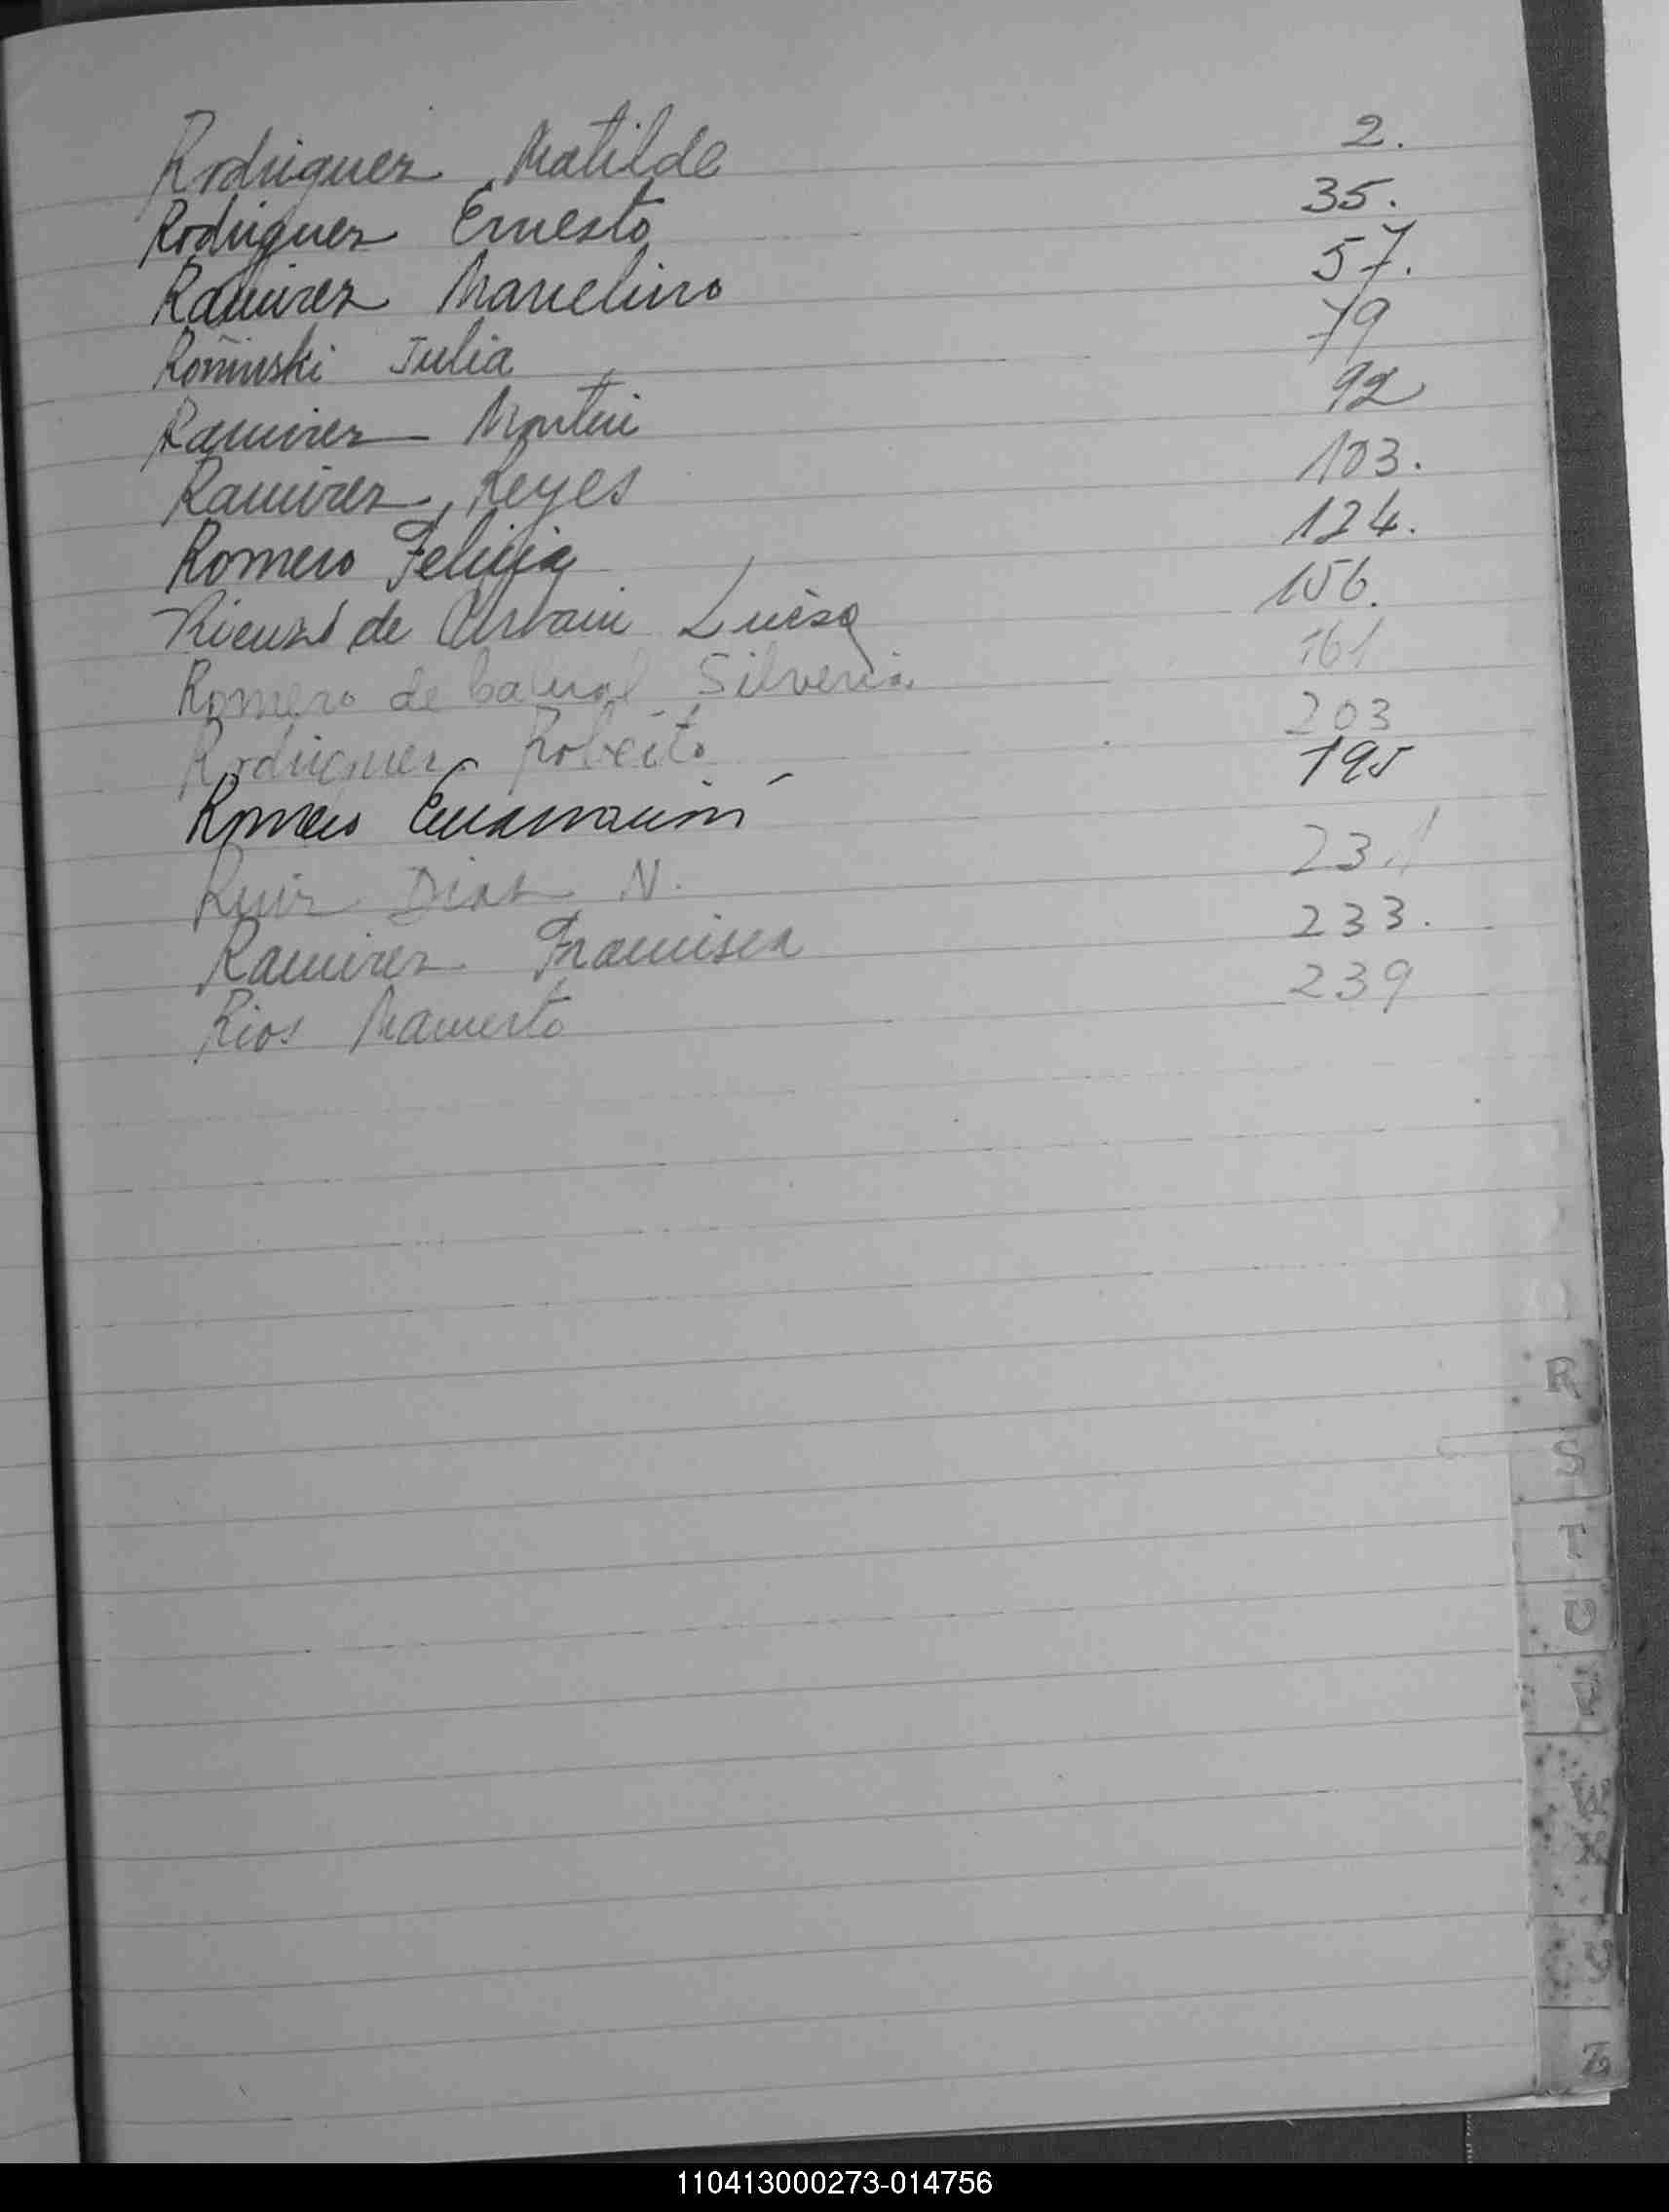 Rodriguez Matilde 2.
Rodriguez Ernesto 35.
Ramirez Marcelino 57.
Rominski Julia 79
Ramirez 92
Ramirez Reyes 103.
Romero Felicia 124.
Rienzi de Urbain Luisa 156.
Romero de Cabral Silveria 161
Rodriguez Roberto 203
Romero Encarnación 195
Ruiz Diaz N. 231
Ramirez Francisca 233.
Rios Mamerto 239
R
S
T
Z
110413000273-014756